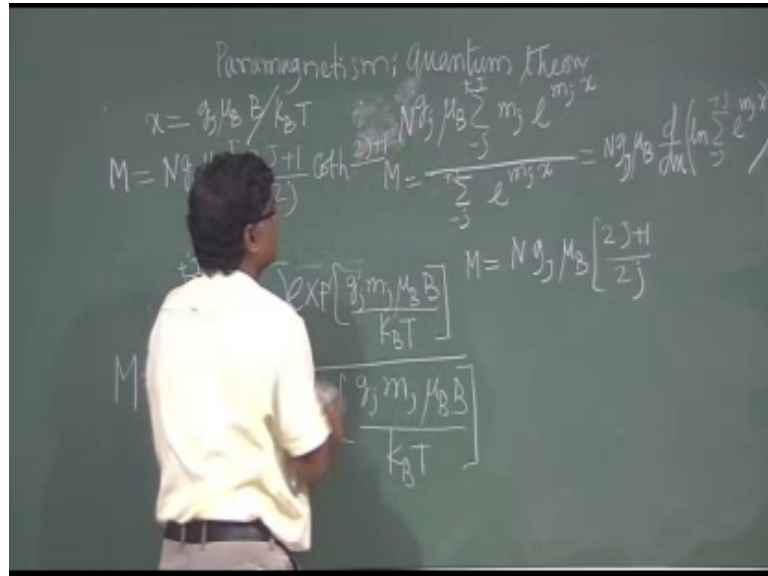 Paramagnetism; quantum theory
x = g_j μ_B B / k_B T
M = N g 2J+1 / 2j coth 2J+1
M = N g_j μ_B Σ_{-j}^{+J} m_j e^{m_j x} / Σ_{-j} e^{m_j x} = N g_j μ_B d/dx (ln Σ_{-j}^{+J} e^{m_j x})
M = N g_j μ_B [ 2J+1 / 2j
M = exp[ g_j m_j μ_B B / k_B T ]
[ g_j m_j μ_B B / k_B T ]